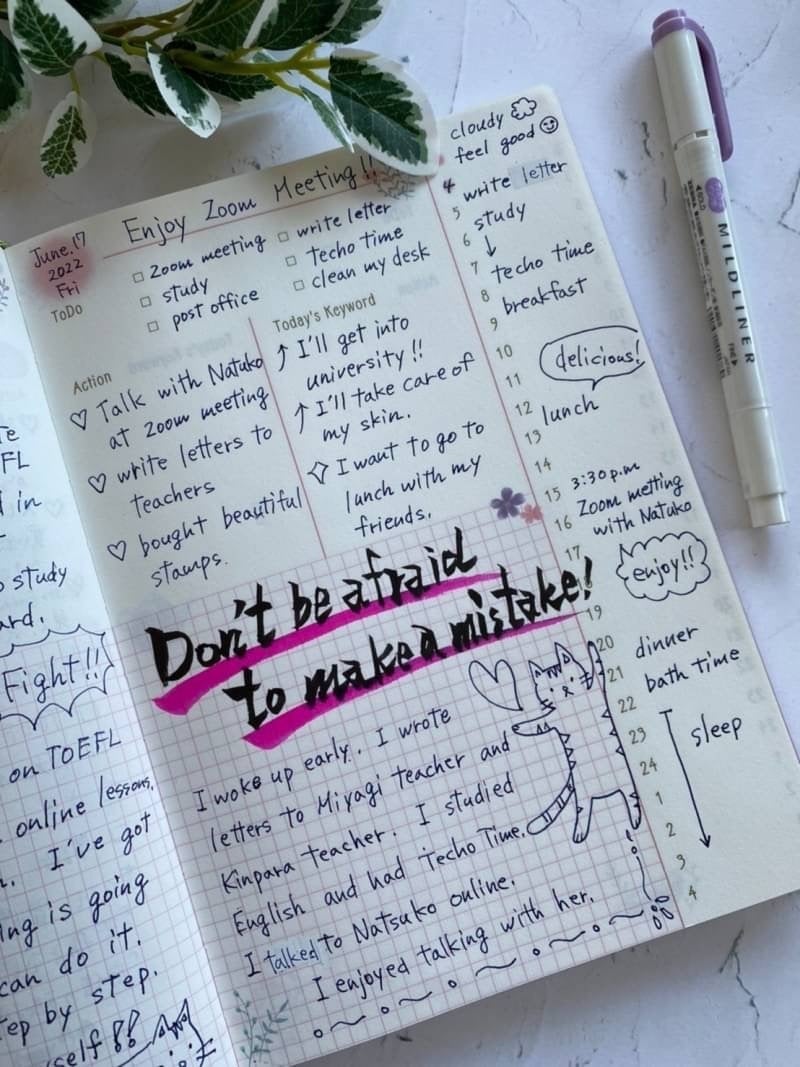 June.17
2022
Fri
Enjoy Zoom Meeting!!
ToDo
□ zoom meeting
□ study
□ post office
□ write letter
□ Techo time
□ clean my desk
Action
♡ Talk with Natuko
at zoom meeting
♡ write letters to
teachers
♡ bought beautiful
stamps.
Today's Keyword
↑ I'll get into
university!!
↑ I'll take care of
my skin.
✧ I want to go to
lunch with my
friends.
Don't be afraid
to make a mistake!
I woke up early. I wrote
letters to Miyagi teacher and
Kinpara teacher. I studied
English and had Techo Time.
I talked to Natsuko online.
I enjoyed talking with her.
cloudy
feel good
4 write letter
5 study
6 ↓
7 techo time
8 breakfast
9
10 delicious!
11
12 lunch
13
14
15 3:30 p.m
16 Zoom metting
with Natuko
17
enjoy!!
19
20 dinner
21 bath time
22
23 sleep
24
1
2
3
4
FL
in
study
ard.
Fight!!
on TOEFL
online lessons,
I've got
ing is going
can do it.
tep by step.
self!!
MILDLINER